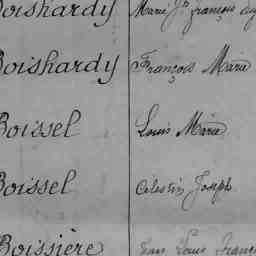 Boishardy Marie Jh françois
Boishardy François Marie
Boissel Louis Marie
Boissel Celestin Joseph
Boissière Jean Louis Franç